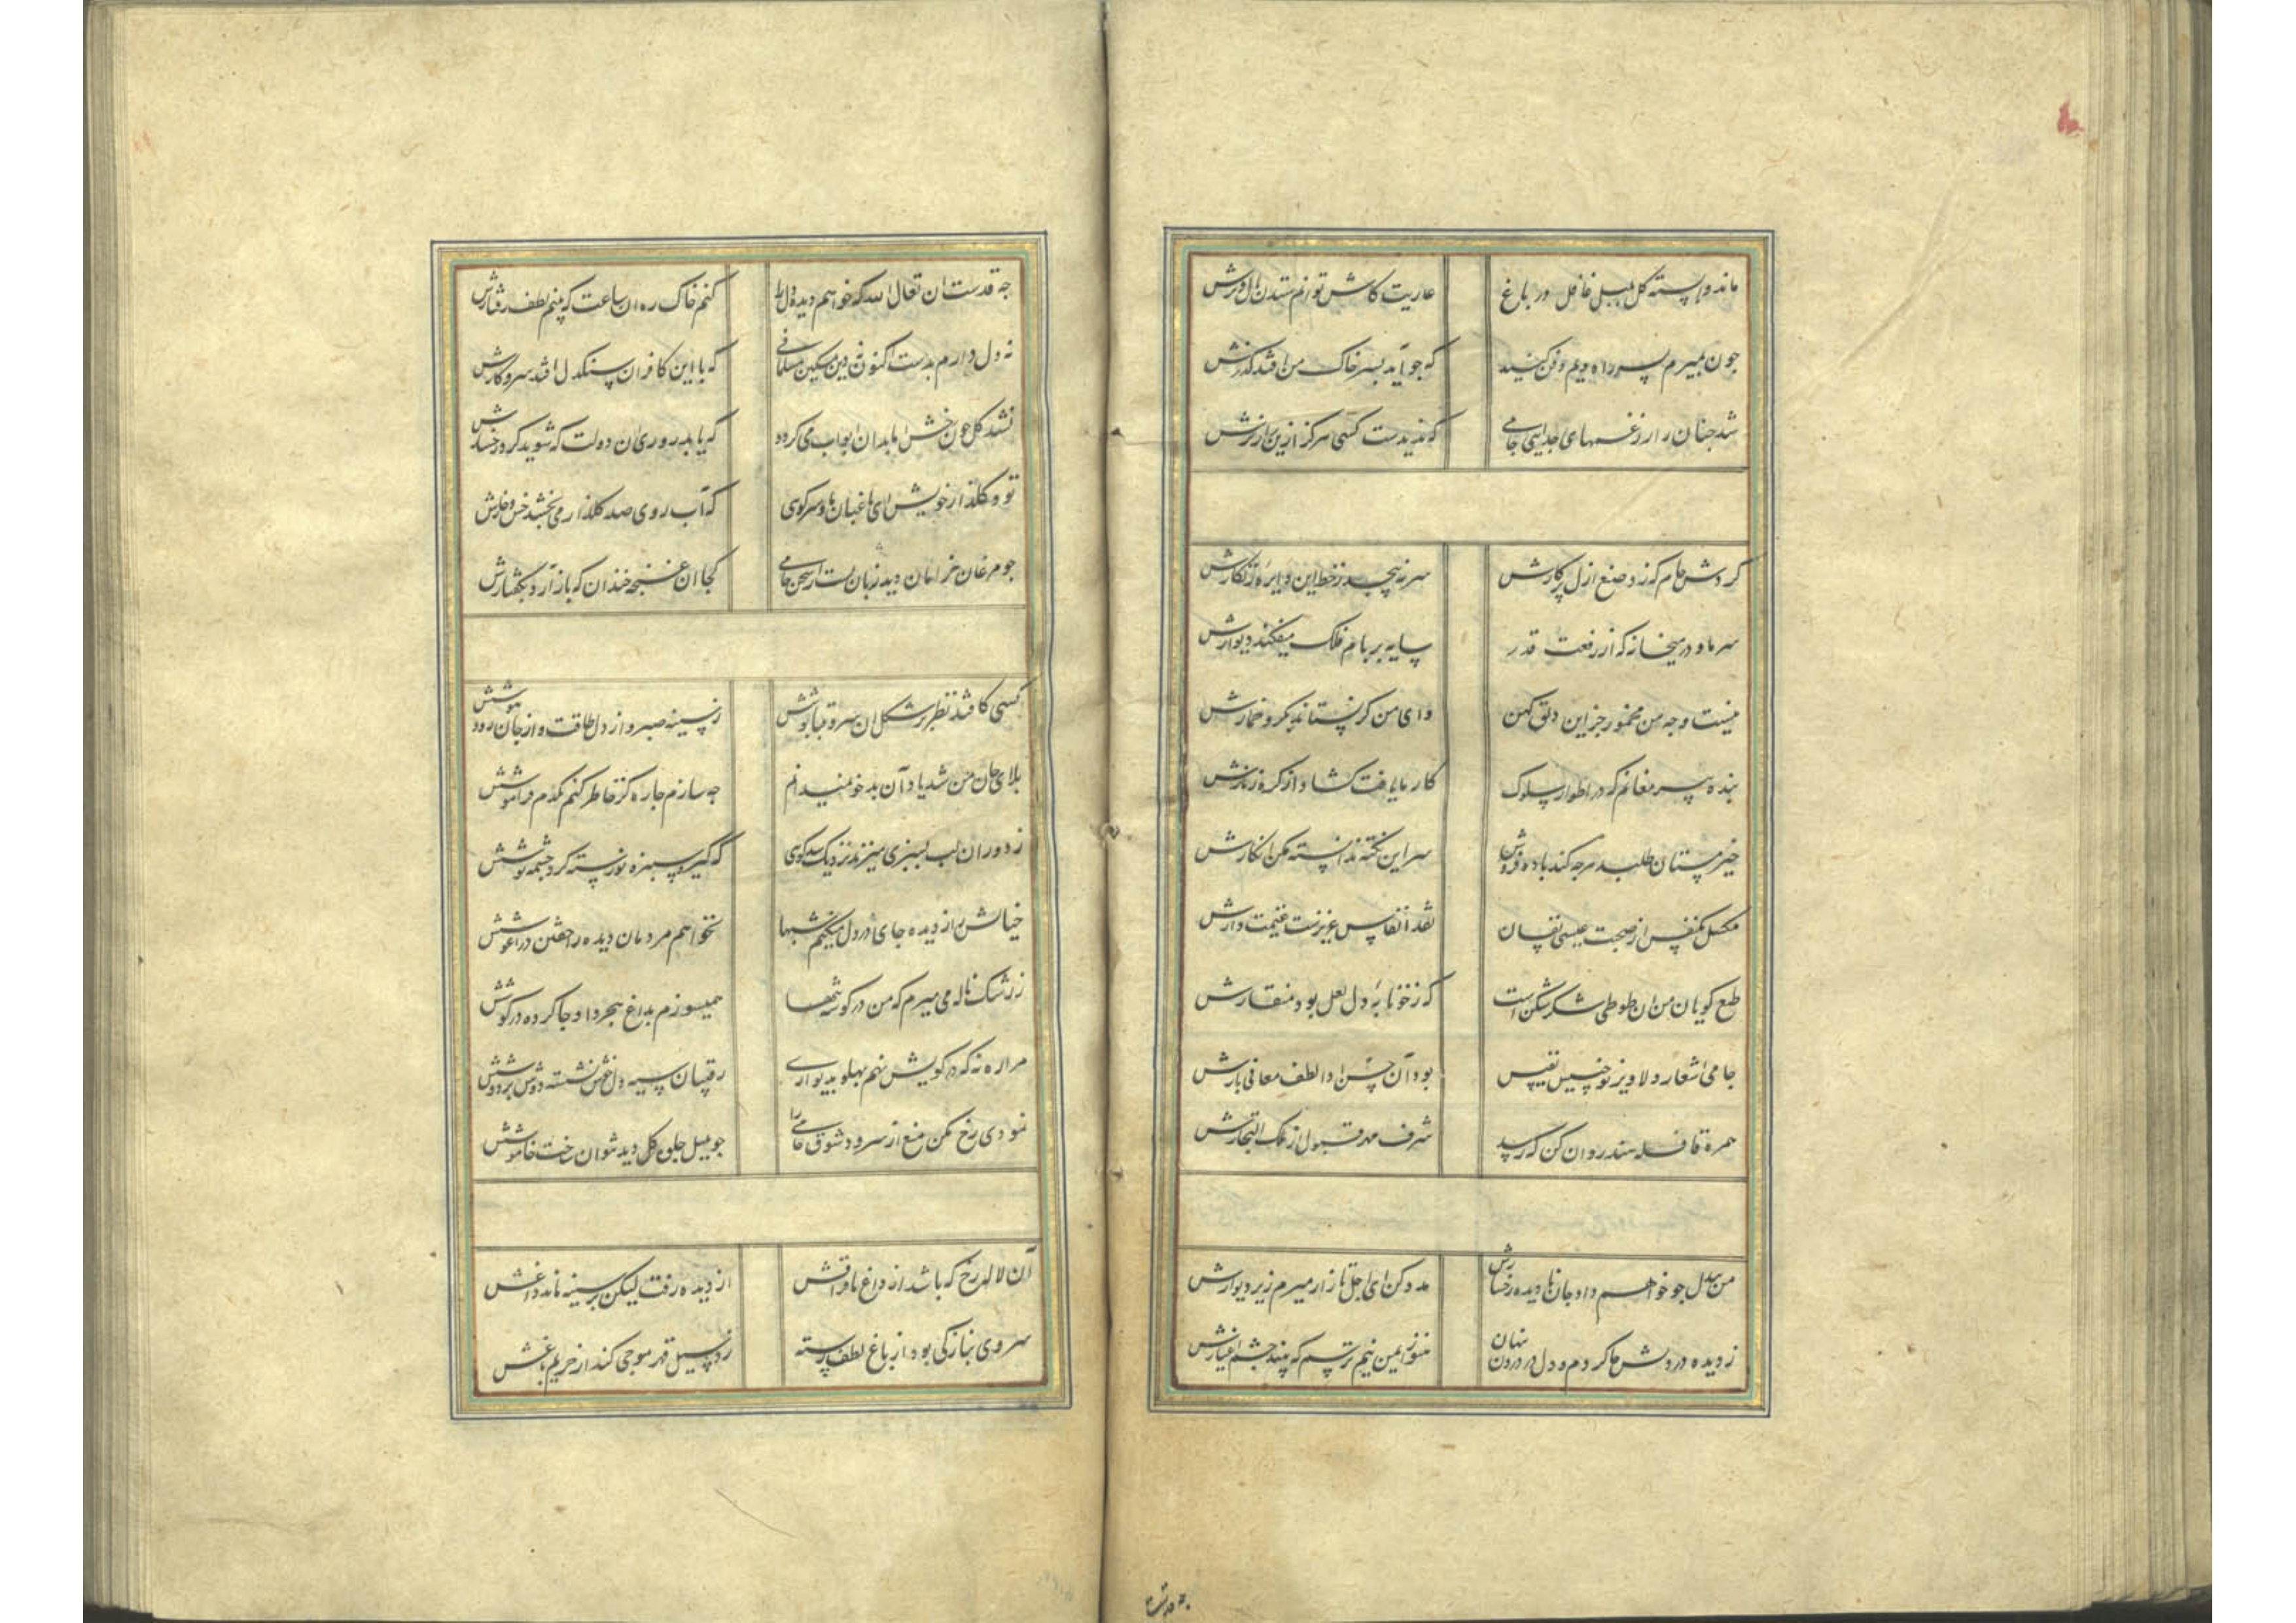 مانده وابسته کل بلبل غافل در باغ عاریت کاش توانم ستدن بال و پرش
چون بمیرم بسر راه ویم دفن کنید که چو آید بسر خاک من افتد گذرش
شد چنان زار ز غمهای جدایی جامی که ندیدست کسی هرگز ازین زارترش
گردش جام که زد صنع ازل پرگارش سر نپیچد ز خط این دایره زنگارش
سر ما و در میخانه که از رفعت قدر سایه بر بام فلک میفکند دیوارش
نیست وجه من مخمور جز این دلق کهن وای من گر نستاند بگرو خمارش
بنده پیر مغانم که در اطوار سلوک کار ما یافت گشاد از گره زنارش
خیر مستان طلبد هرچه کند باده فروش سر این نکته ندانسته مکن انکارش
مگسل یکنفس از صحبت عیسی نفسان نقد انفاس عزیزست غنیمت دارش
طبع گویان من آن طوطی شکرشکن است که ز خونابه دل لعل بود منقارش
جامی اشعار دلاویز تو جنسیست نفیس بود آن حسن ادا لطف معانی بارش
همره قافله هند روان کن که رسد شرف مهر قبول از ملک التجارش
من بیدل چو خواهم داد جان نادیده رخسارش مدد کن ای اجل تا زار میرم زیر دیوارش
ز دیده در دلش جا کردم و دل در درون پنهان هنوز ایمن نیم ترسم که بیند چشم اغیارش
چه قدست آن تعالی الله که خواهم دیده و دل را کنم خاک ره آن ساعت که بینم لطف رفتارش
نه دل دارم بدست اکنون نه دین مسکین مسلمانی که با این کافران سنگدل افتد سر و کارش
نشد گل چون رخش با بدان آب می گردد که یابد روزی آن دولت که شوید گرد رخسارش
تو و گلزار خویش ای باغبان ما و سر کوی که آب روی صد گلزار می بخشد خس و خارش
چو مرغان خزان دیده زبان بست از سخن جامی کجا آن غنچه خندان که باز آرد بگفتارش
کسی کافتد نظر بر شکل آن سرو قباپوشش ز سینه صبر و از دل طاقت و از جان رود هوشش
بلای جان من شد یاد آن بدخو نمیدانم چه سازم چاره کز خاطر کنم یکدم فراموشش
ز دور آن لب بسبزی میزند نزدیک شد گویی که گیرد سبزه نورسته گرد چشمه نوشش
خیالش را ز دیده جای در دل میکنم شبها نخواهم مردمان دیده را خفتن در آغوشش
ز رشک ناله می میرم که من در گوشه تنها همیسوزم بداغ هجر و او جا کرده در گوشش
مرا ره نه که در کویش نهم پهلو بدیواری رقیبان سیه دل خوش نشسته دوش بر دوشش
نمودی رخ مکن منع از سرود شوق جامی را چو بلبل جلوه گل دید نتوان ساخت خاموشش
آن لاله رخ که باشد از داغ ما فراغش از دیده رفت لیکن بر سینه ماند داغش
سروی بنازکی بود از باغ لطف رسته زد سیل قهر موجی کند از حریم باغش
چه قدست